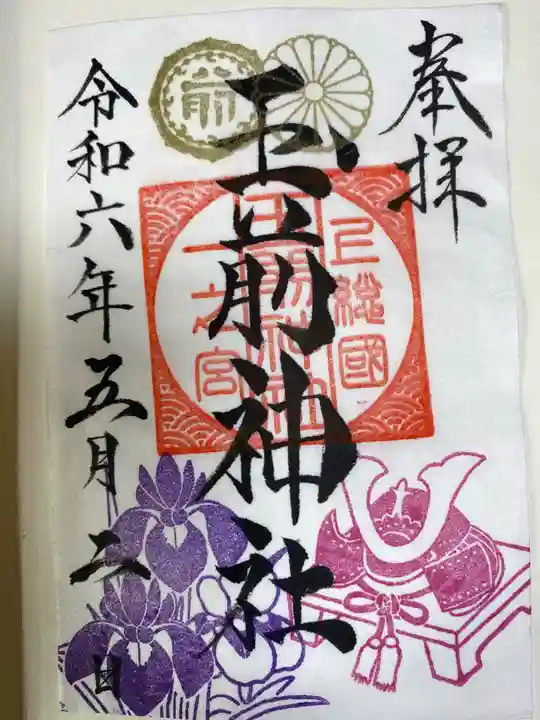 奉拝
上総國
玉前神社
一之宮
前
玉前神社
令和六年五月二日